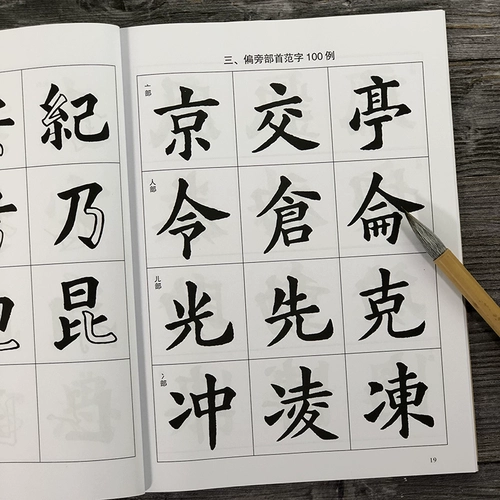 紀
乃
昆
三、偏旁部首范字100例
亠部
京交亭
人部
令倉侖
儿部
光先克
冫部
冲凌凍
19